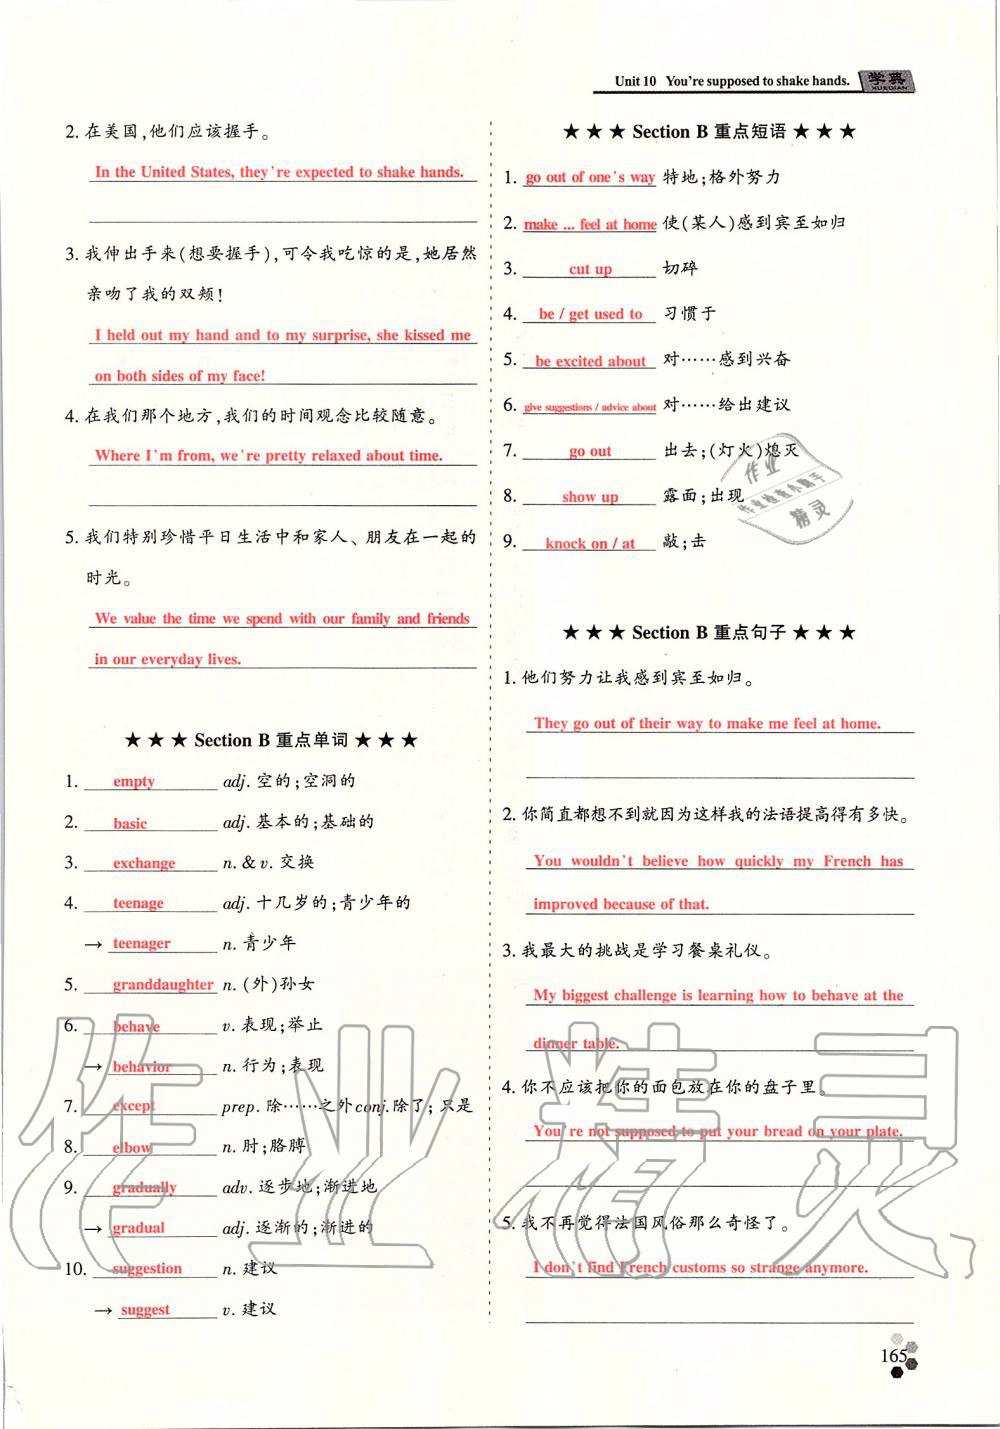 Unit 10 You're supposed to shake hands.
学典
XUEDIAN
2. 在美国,他们应该握手。
In the United States, they're expected to shake hands.
3. 我伸出手来(想要握手),可令我吃惊的是,她居然
亲吻了我的双颊!
I held out my hand and to my surprise, she kissed me
on both sides of my face!
4. 在我们那个地方,我们的时间观念比较随意。
Where I'm from, we're pretty relaxed about time.
5. 我们特别珍惜平日生活中和家人、朋友在一起的
时光。
We value the time we spend with our family and friends
in our everyday lives.
★ ★ ★ Section B 重点单词 ★ ★ ★
1. empty adj. 空的;空洞的
2. basic adj. 基本的;基础的
3. exchange n. & v. 交换
4. teenage adj. 十几岁的;青少年的
→ teenager n. 青少年
5. granddaughter n. (外)孙女
6. behave v. 表现;举止
→ behavior n. 行为;表现
7. except prep. 除……之外 conj. 除了;只是
8. elbow n. 肘;胳膊
9. gradually adv. 逐步地;渐进地
→ gradual adj. 逐渐的;渐进的
10. suggestion n. 建议
→ suggest v. 建议
★ ★ ★ Section B 重点短语 ★ ★ ★
1. go out of one's way 特地;格外努力
2. make ... feel at home 使(某人)感到宾至如归
3. cut up 切碎
4. be / get used to 习惯于
5. be excited about 对……感到兴奋
6. give suggestions / advice about 对……给出建议
7. go out 出去;(灯火)熄灭
8. show up 露面;出现
9. knock on / at 敲;击
作业
作业检查小助手
精灵
★ ★ ★ Section B 重点句子 ★ ★ ★
1. 他们努力让我感到宾至如归。
They go out of their way to make me feel at home.
2. 你简直都想不到就因为这样我的法语提高得有多快。
You wouldn't believe how quickly my French has
improved because of that.
3. 我最大的挑战是学习餐桌礼仪。
My biggest challenge is learning how to behave at the
dinner table.
4. 你不应该把你的面包放在你的盘子里。
You're not supposed to put your bread on your plate.
5. 我不再觉得法国风俗那么奇怪了。
I don't find French customs so strange anymore.
作业精灵
165